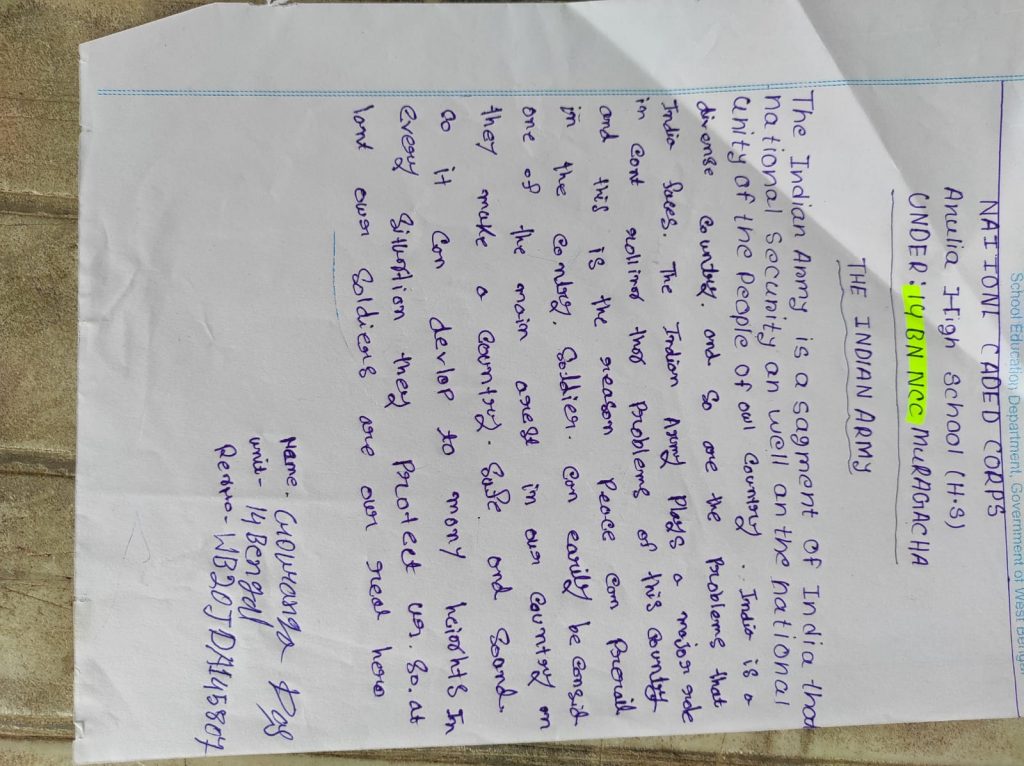 School Education Department, Government of West Bengal
NAITIONL CADED CORPS
Anulia High School (H.S)
UNDER: 14 BN NCC MURAGACHA
THE INDIAN ARMY
The Indian Army is a sagment of India that
national security an well an the national
unity of the People of owl country.. India is a
diverse country. and so are the Problems that
India faces. The Indian Army Plays a major side
in cont rolling that Problems of this country
and this is the reason Peace can Prevail
in the contry. Soldier. can earily be consid
one of the main arest in our country on
they make a country. safe and sound.
so it con devlop to mony heights In
every situation they Protect us. So. at
lant our Soldiers are our real hero
Name. Gowranga Das
unit- 14 Bengal
Regmo- WB20JDA145807